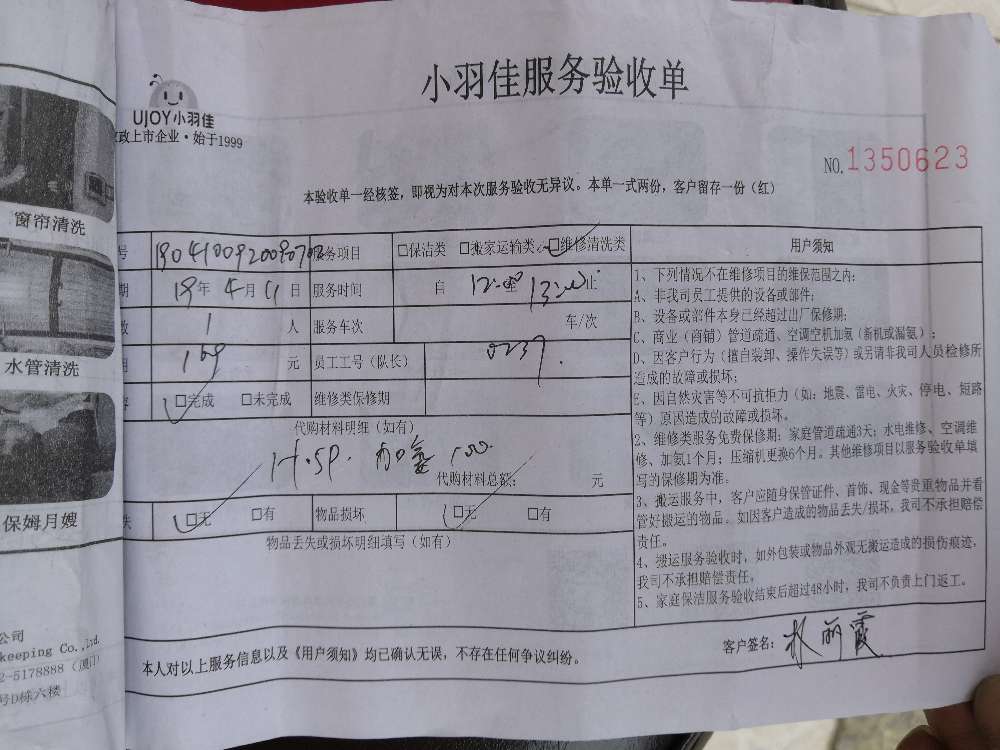 小羽佳服务验收单
UJOY小羽佳
政上市企业·始于1999
NO.1350623
本验收单一经核签，即视为对本次服务验收无异议。本单一式两份，客户留存一份（红）
号 服务项目 □保洁类 □搬家运输类 □维修清洗类 用户须知
期 19年4月11日 服务时间 自 止
数 1 人 服务车次 车/次
用 169 元 员工工号（队长） 0237
□完成 □未完成 维修类保修期
代购材料明细（如有）
1H.5P. 加氨 100
代购材料总额： 元
失 □无 □有 物品损坏 □无 □有
物品丢失或损坏明细填写（如有）
1、下列情况不在维修项目的维保范围之内：
A、非我司员工提供的设备或部件；
B、设备或部件本身已经超过出厂保修期；
C、商业（商铺）管道疏通、空调空机加氨（新机或漏氨）；
D、因客户行为（擅自装卸、操作失误等）或另请非我司人员检修所
造成的故障或损坏；
E、因自然灾害等不可抗拒力（如：地震、雷电、火灾、停电、短路
等）原因造成的故障或损坏。
2、维修类服务免费保修期：家庭管道疏通3天；水电维修、空调维
修、加氨1个月；压缩机更换6个月。其他维修项目以服务验收单填
写的保修期为准。
3、搬运服务中，客户应随身保管证件、首饰、现金等贵重物品并看
管好搬运的物品。如因客户造成的物品丢失/损坏，我司不承担赔偿
责任。
4、搬运服务验收时，如外包装或物品外观无搬运造成的损伤痕迹，
我司不承担赔偿责任。
5、家庭保洁服务验收结束后超过48小时，我司不负责上门返工。
本人对以上服务信息以及《用户须知》均已确认无误，不存在任何争议纠纷。
客户签名： 林丽霞
窗帘清洗
水管清洗
保姆月嫂
公司
keeping Co.,Ltd.
2-5178888（厦门
号D栋六楼